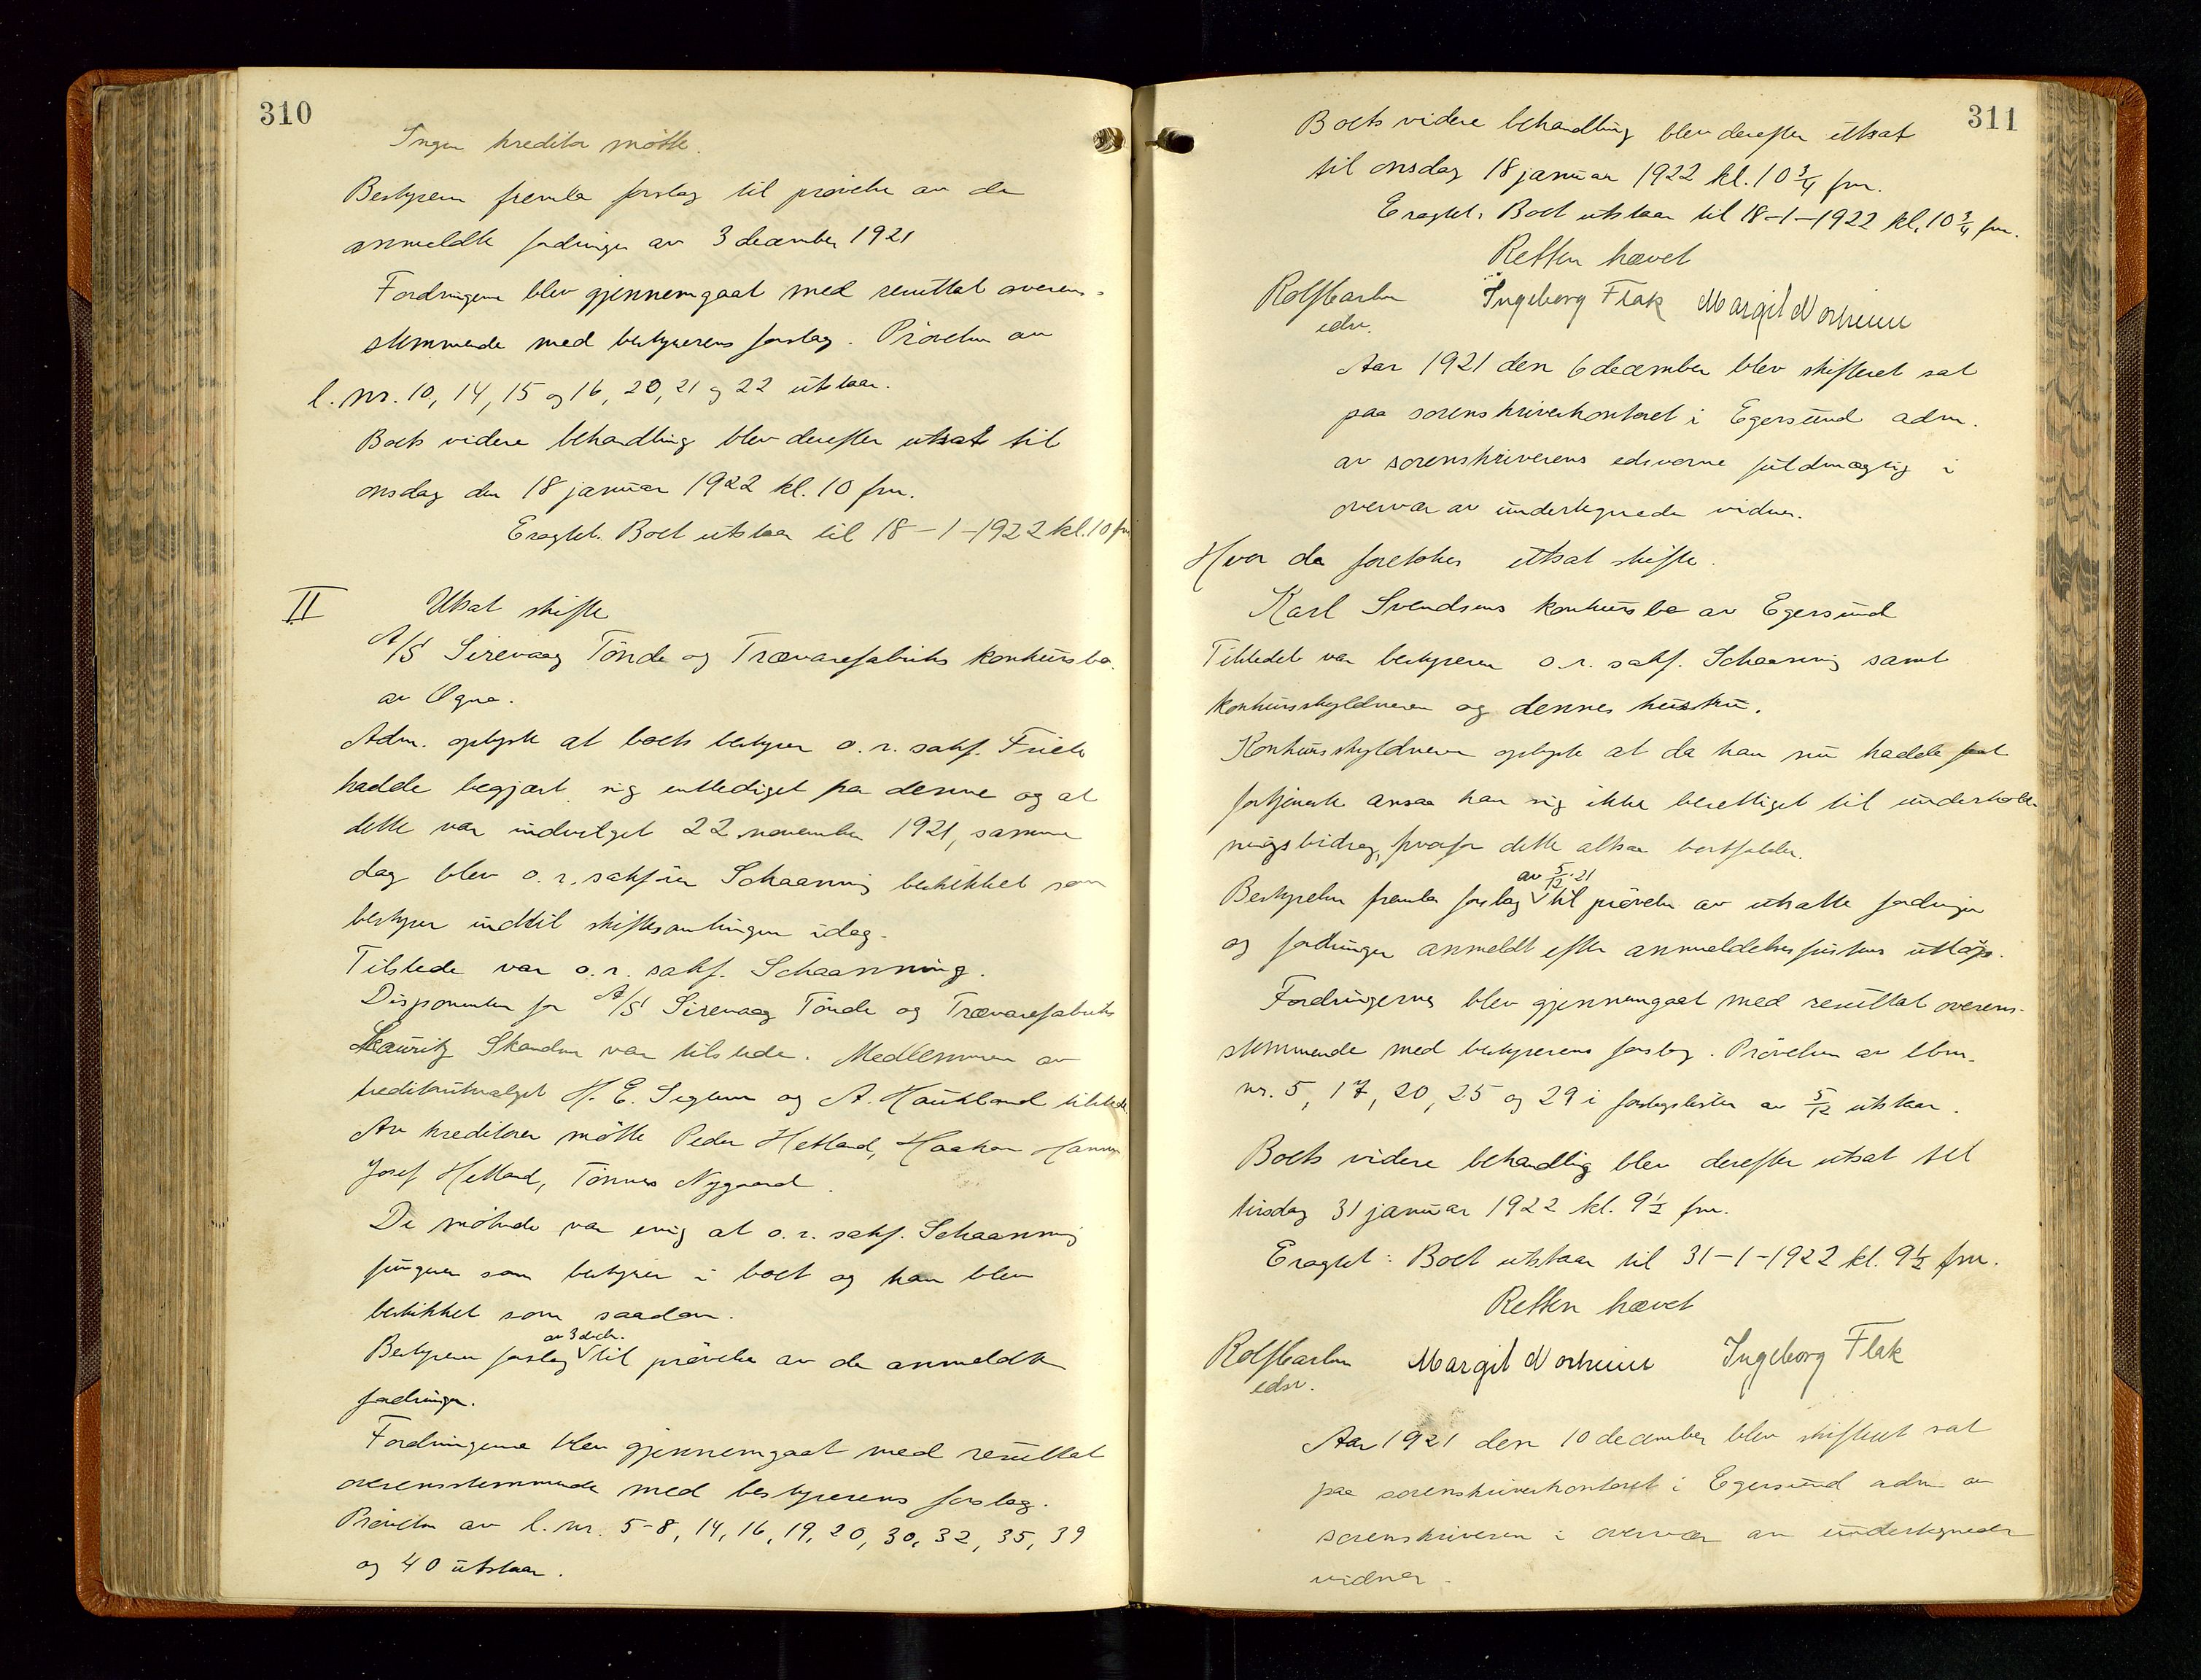 310
Ingen kreditor møtte.
Bestyreren fremla forslag til prøvelse av de
anmeldte fordringer av 3 december 1921
Fordringene blev gjennemgaat med resultat overens-
stemmende med bestyrerens forslag. Prøvelsen av
l. nr. 10, 14, 15 og 16, 20, 21 og 22 utstaar.
Boets videre behandling blev derefter utsat til
onsdag den 18 januar 1922 kl. 10 fm.
Eragtet. Boet utstaar til 18-1-1922 kl. 10 fm
II Utsat skifte
A/S Sirevaag Tønde og Trævarefabriks konkursbo
av Ogna.
Adm. oplyste at boets bestyrer o. r. sakf. Friele
hadde begjært sig entlediget fra denne og at
dette var indvilget 22 november 1921, samme
dag blev o. r. sakfører Schaanning beskikket som
bestyrer indtil skiftesamlingen idag.
Tilstede var o. r. sakf. Schaanning.
Disponenten for A/S Sirevaag Tønde og Trævarefabriks
Lauritz var tilstede. Medlemmene av
kreditorutvalget H. E. Seglem og A. Haukland tilstede.
Av kreditorer møtte Peder Hetland, Haakon
Josef Hetland, Tønnes Nygaard.
De møtende var enig at o. r. sakf. Schaanning
fungerer som bestyrer i boet og han blev
beskikket som saadan.
av 3 decbr.
Bestyreren forslag til prøvelse av de anmeldte
fordringer.
Fordringene blev gjennemgaat med resultat
overensstemmende med bestyrerens forslag.
Prøvelsen av l. nr. 5-8, 14, 16, 19, 20, 30, 32, 35, 39
og 40 utstaar.
311
Boets videre behandling blev derefter utsat
til onsdag 18 januar 1922 kl. 10 3/4 fm.
Eragtet: Boet utstaar til 18-1-1922 kl. 10 3/4 fm.
Retten hævet
Rolf Carlsen Ingeborg Flak Margit Norheim
edsv.
Aar 1921 den 6 december blev skifteret sat
paa sorenskriverkontoret i Egersund adm.
av sorenskriverens edsvorne fuldmægtig i
overvær av undertegnede vidner.
Hvor da foretokes utsat skifte.
Karl Svendsens konkursbo av Egersund
Tilstede var bestyreren o. r. sakf. Schaanning samt
konkursskyldneren og dennes hustru.
Konkursskyldneren oplyste at da han nu hadde fast
fortjeneste ansaa han sig ikke berettiget til underhold-
ningsbidrag, hvorfor dette altsaa bortfalder.
av 5/12-21
Bestyrelsen fremla forslag til prøvelse av utsatte fordringer
og fordringer anmeldt efter anmeldelsesfristens utløp.
Fordringerne blev gjennemgaat med resultat overens-
stemmende med bestyrerens forslag. Prøvelsen av lbnr.
nr. 5, 17, 20, 25 og 29 i forslagslisten av 5/12 utstaar.
Boets videre behandlig blev derefter utsat til
tirsdag 31 januar 1922 kl. 9 1/2 fm.
Eragtet: Boet utstaar til 31-1-1922 kl. 9 1/2 fm.
Retten hævet
Rolf Carlsen Margit Norheim Ingeborg Flak
edsv.
Aar 1921 den 10 december blev skifteret sat
paa sorenskriverkontoret i Egersund adm av
sorenskriveren i overvær av undertegnede
vidner.